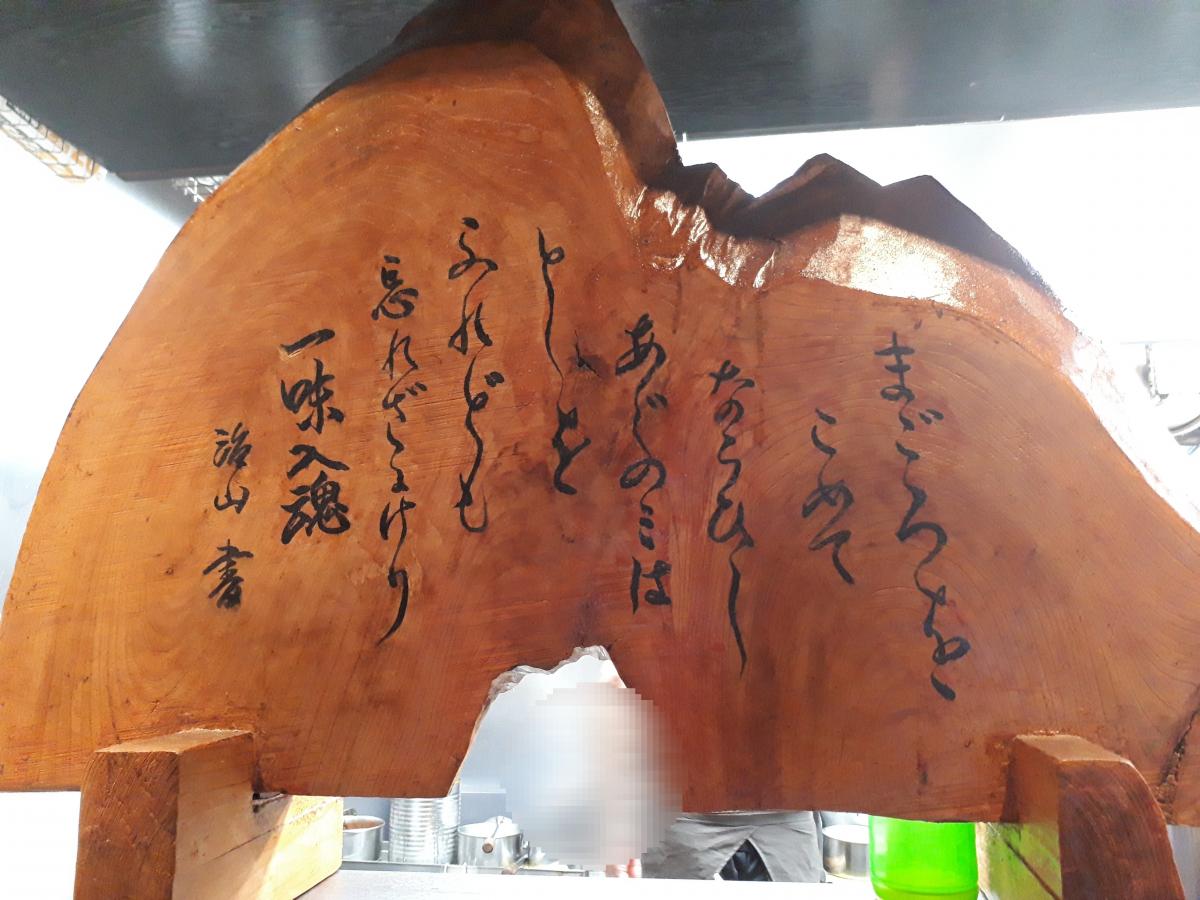 まごころを
こめて
ならひし
あぢのミは
としを
ふれども
忘れざりけり
一味入魂
治山 書